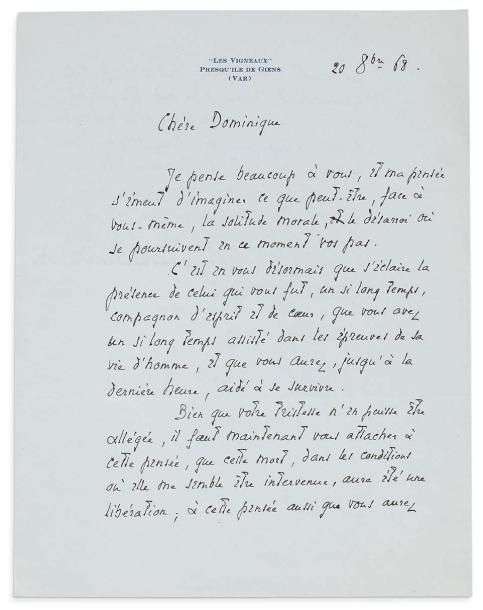 "Les Vigneaux"
Presqu'ile de Giens
(Var)
20 8bre 68.
Chère Dominique
Je pense beaucoup à vous, et ma pensée
s'émeut d'imaginer ce que peut-être, face à
vous-même, la solitude morale, et le désarroi où
se poursuivent en ce moment vos pas.
C'est en vous désormais que s'éclaire la
présence de celui qui vous fut, un si long temps,
compagnon d'esprit et de cœur, que vous avez
un si long temps assisté dans les épreuves de sa
vie d'homme, et que vous aurez, jusqu'à la
dernière heure, aidé à se survivre.
Bien que votre tristesse n'en puisse être
allégée, il faut maintenant vous attacher à
cette pensée, que cette mort, dans les conditions
où elle me semble être intervenue, aura été une
libération ; à cette pensée aussi que vous aurez